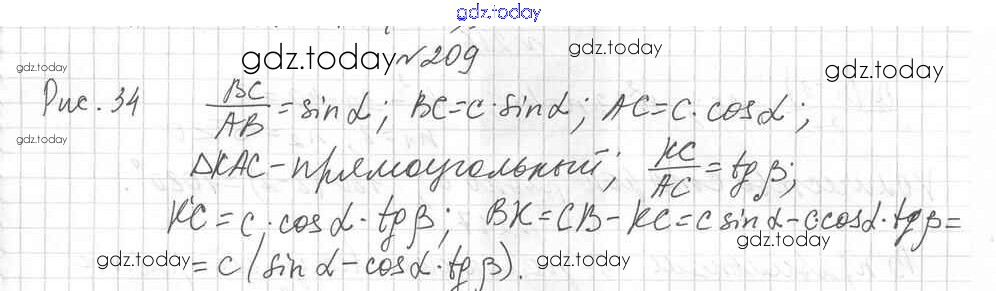 gdz.today
gdz.today №209 gdz.today
gdz.today gdz.today
Рис. 34 BC/AB = sin α; BC = c · sin α; AC = c · cos α;
gdz.today
ΔKAC – прямоугольный; KC/AC = tg β;
KC = c · cos α · tg β; BK = CB – KC = c sin α – c · cos α · tg β =
gdz.today
gdz.today = c (sin α – cos α · tg β). gdz.today